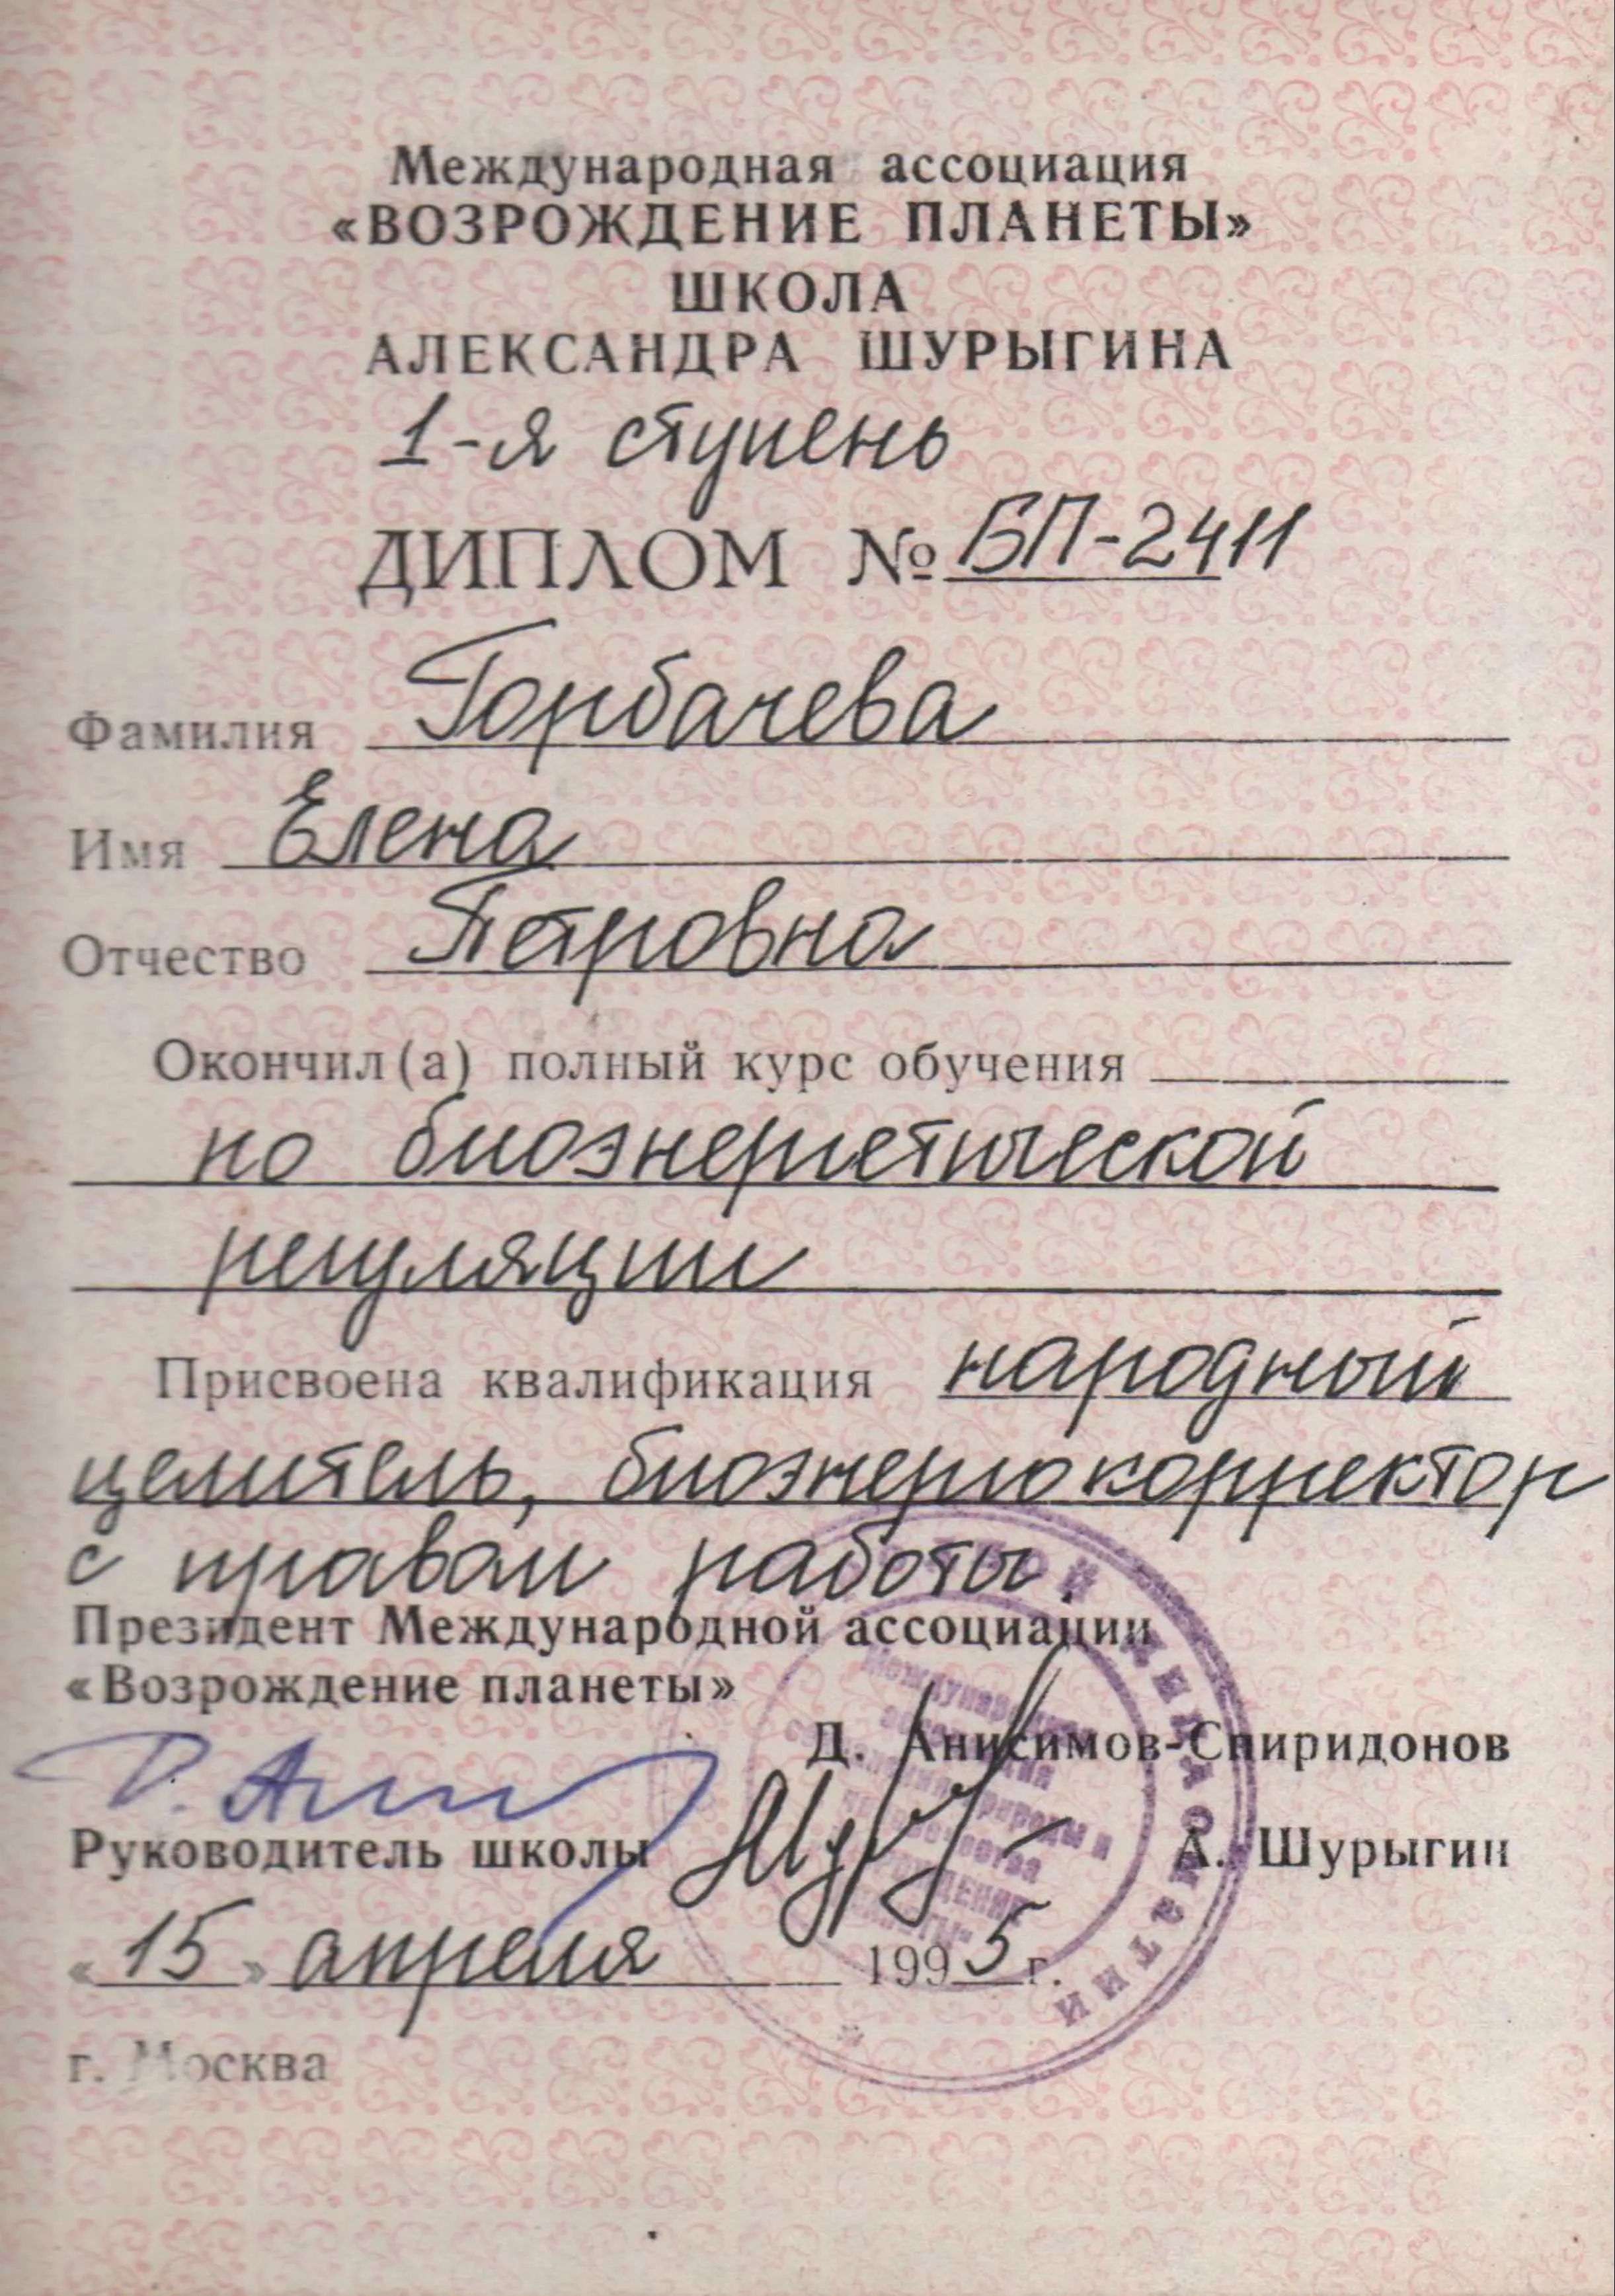 Международная ассоциация
«ВОЗРОЖДЕНИЕ ПЛАНЕТЫ»
ШКОЛА
АЛЕКСАНДРА ШУРЫГИНА
1-я ступень
ДИПЛОМ № БП-2411
Фамилия Горбачева
Имя Елена
Отчество Петровна
Окончил(а) полный курс обучения
по биоэнергетической
регуляции
Присвоена квалификация народный
целитель, биоэнергокорректор
с правом работы
Президент Международной ассоциации
«Возрождение планеты»
Д. Анисимов-Спиридонов
Руководитель школы А. Шурыгин
«15» апреля 1995 г.
г. Москва